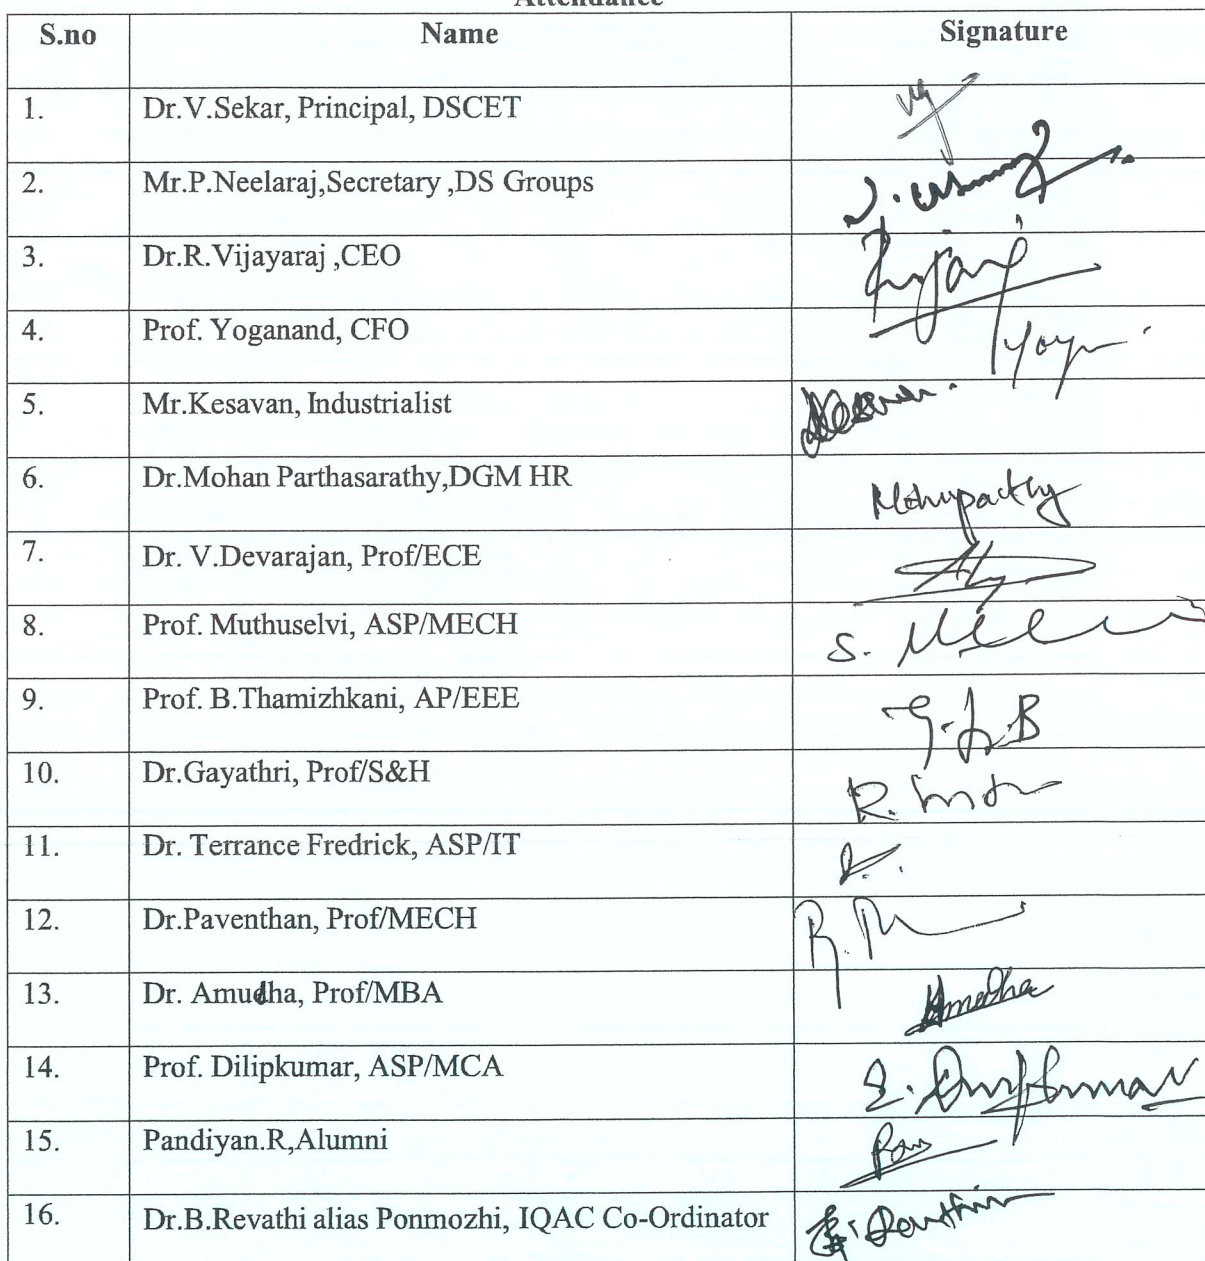 Attendance
S.no Name Signature
1. Dr.V.Sekar, Principal, DSCET
2. Mr.P.Neelaraj,Secretary ,DS Groups
3. Dr.R.Vijayaraj ,CEO
4. Prof. Yoganand, CFO
5. Mr.Kesavan, Industrialist
6. Dr.Mohan Parthasarathy,DGM HR
7. Dr. V.Devarajan, Prof/ECE
8. Prof. Muthuselvi, ASP/MECH S.
9. Prof. B.Thamizhkani, AP/EEE
10. Dr.Gayathri, Prof/S&H R.
11. Dr. Terrance Fredrick, ASP/IT
12. Dr.Paventhan, Prof/MECH
13. Dr. Amudha, Prof/MBA Amudha
14. Prof. Dilipkumar, ASP/MCA
15. Pandiyan.R,Alumni
16. Dr.B.Revathi alias Ponmozhi, IQAC Co-Ordinator